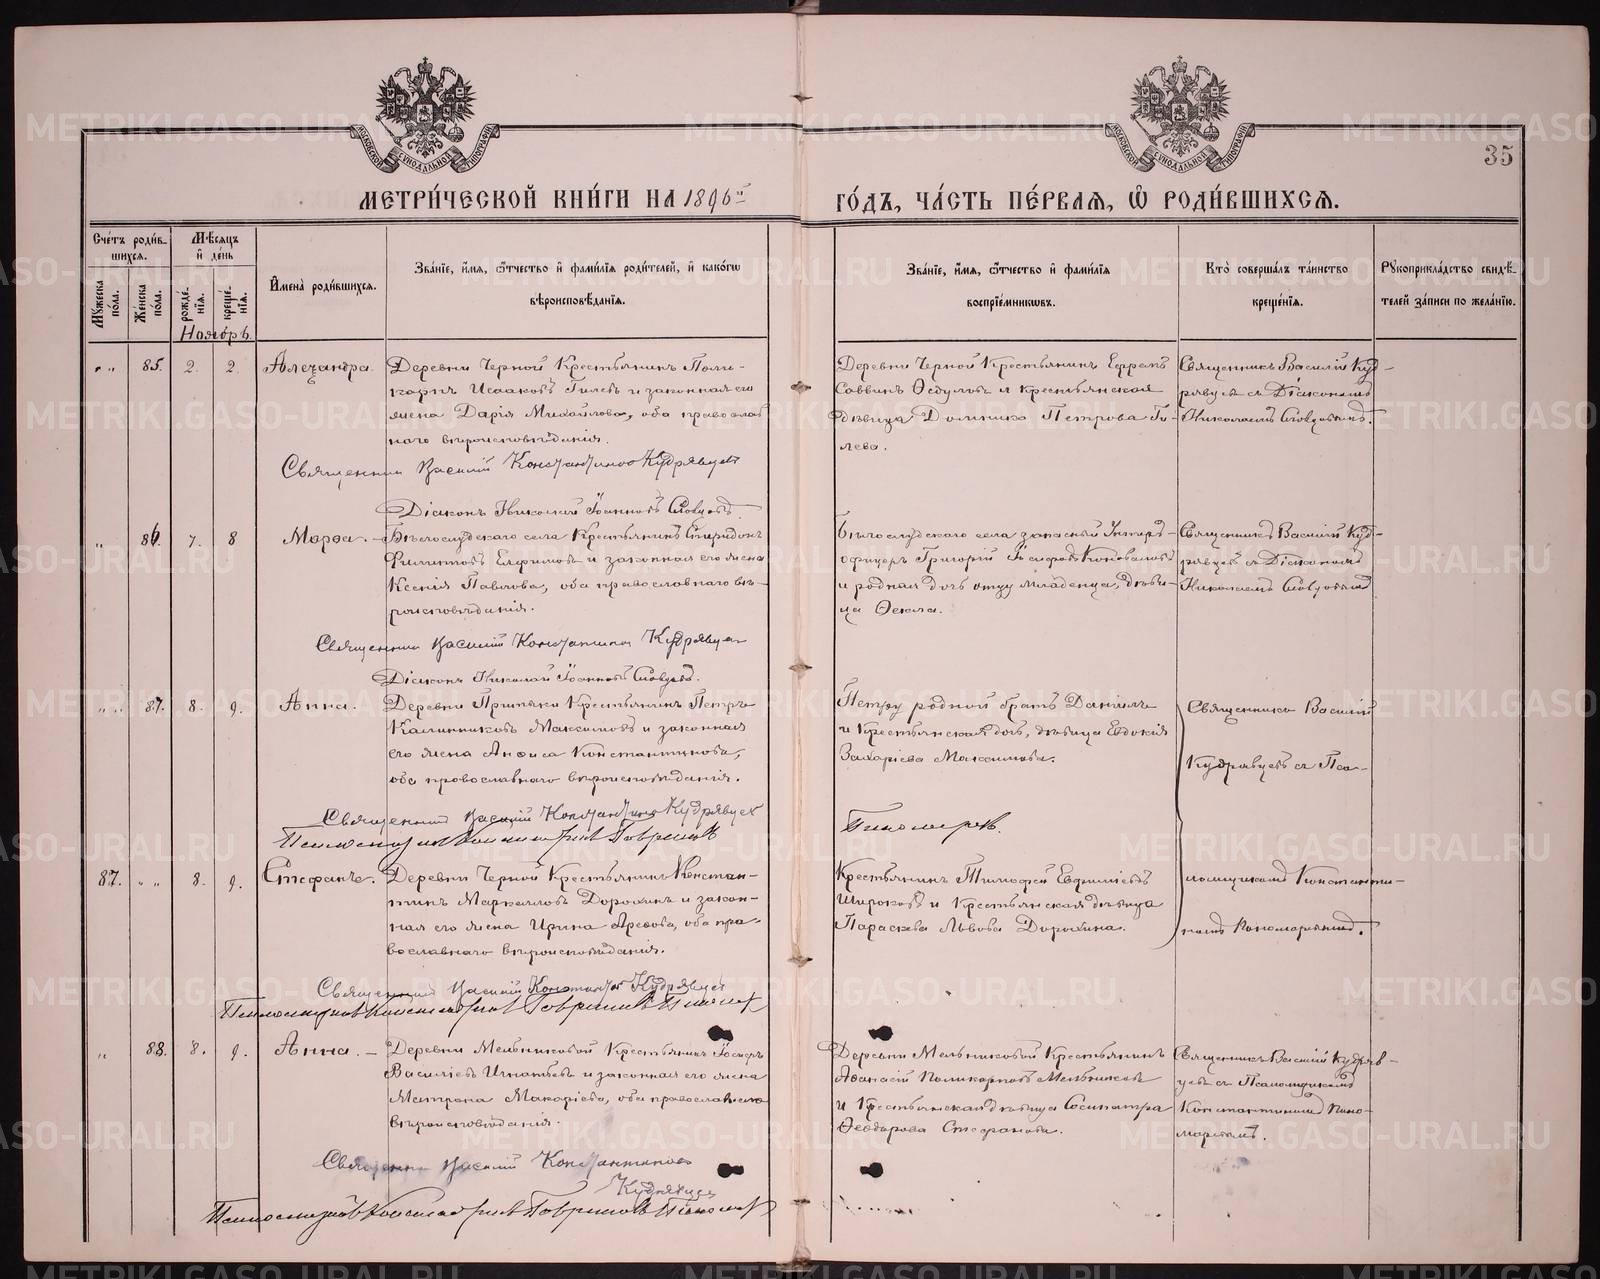 35
МЕТРИ́ЧЕСКОЙ КНИ́ГИ НА 1896й
ГО́ДЪ, ЧА́СТЬ ПЕ́РВАЯ, Ѡ РОДИ́ВШИХСЯ.
Сче́тъ роди́в-
шихся.
Мужеска пола.
Женска пола.
Мѣсяцъ
и де́нь
рожде-
нія.
креще-
нія.
Ноябрь
Имена̀ роди́вшихся.
Зва́ніе, и́мя, ѻ҆́тчество и҆ фами́лія роди́телей, и҆ како́гѡ
вѣроисповѣ́данія.
Зва́ніе, и́мя, ѻ҆́тчество и҆ фами́лія
воспріе́мниковъ.
Кто̀ соверша́лъ та́инство
креще́нія.
Рукоприкла́дство свидѣ́-
телей за́писи по жела́нію.
" " 85. 2. 2. Александра.
Деревни Черной Крестьянинъ Поли-
карпъ Исааковъ Гилевъ и законная его
жена Дарія Михайлова, оба православ
наго вѣроисповѣданія.
Священник Василий Константинов Кудрявцев
Діаконъ Николай Іоанновъ Словцовъ.
Деревни Черной Крестьянинъ Ефремъ
Саввинъ Ѳедуловъ и крестьянская
дѣвица Домника Петрова Ги-
лева.
Священникъ Василій Куд-
рявцевъ съ Діакономъ
Николаемъ Словцовымъ.
" 86. 7. 8 Марѳа. -
Бѣлослудскаго села Крестьянинъ Спиридонъ
Филиповъ Елфимовъ и законная его жена
Ксенія Павлова, оба православнаго вѣ-
роисповѣданія.
Священник Василий Константинов Кудрявцев
Діаконъ Николай Іоанновъ Словцовъ.
Бѣлослудского села запасный Унтеръ
офицеръ Григорій Іосифовъ Коноваловъ
и родная дочь отцу младенца, дѣви-
ца Ѳекла.
Священникъ Василій Куд-
рявцевъ съ Діакономъ
Николаемъ Словцовымъ
" " 87. 8. 9. Анна.
Деревни Крестьянинъ Петръ
Калинниковъ Максимовъ и законная
его жена Анфиса Константинова,
оба православнаго вѣроисповѣданія.
Священник Василий Константинов Кудрявцев
Псаломщикъ Константинъ Гавриловъ
Пономаревъ.
Петру родной братъ Даніилъ
и Крестьянская дочь, дѣвица Евдокія
Захаріева Максимова.
Священникъ Василій
Кудрявцевъ съ Пса-
87. " " 8. 9. Стефанъ.
Деревни Черной Крестьянинъ Констан-
тинъ Маркелловъ Дорохинъ и закон-
ная его жена Ирина Арефова, оба пра-
вославнаго вѣроисповѣданія.
Священник Василий Константинов Кудрявцев
Псаломщикъ Константинъ Гавриловъ
Крестьянинъ Тимофей Евфиміевъ
Широковъ и Крестьянская дѣвица
Параскева Львова Дорохина.
ломщикомъ Константи-
номъ Пономаревымъ.
" 88. 8. 9. Анна. -
Деревни Мельниковой Крестьянинъ
Василіевъ Игнатьевъ и законная его жена
Матрона Макаріева, оба православнаго
вѣроисповѣданія.
Священник Василий Константинов
Кудрявцев
Псаломщикъ Константинъ Гавриловъ
Деревни Мельниковой Крестьянинъ
Аѳанасій Поликарповъ Мельниковъ
и Крестьянская дѣвица Сосипатра
Ѳеодорова Стефанова.
Священникъ Василій Кудряв-
цевъ съ Псаломщикомъ
Константиномъ Поно-
маревымъ.
METRIKI.GASO-URAL.RU